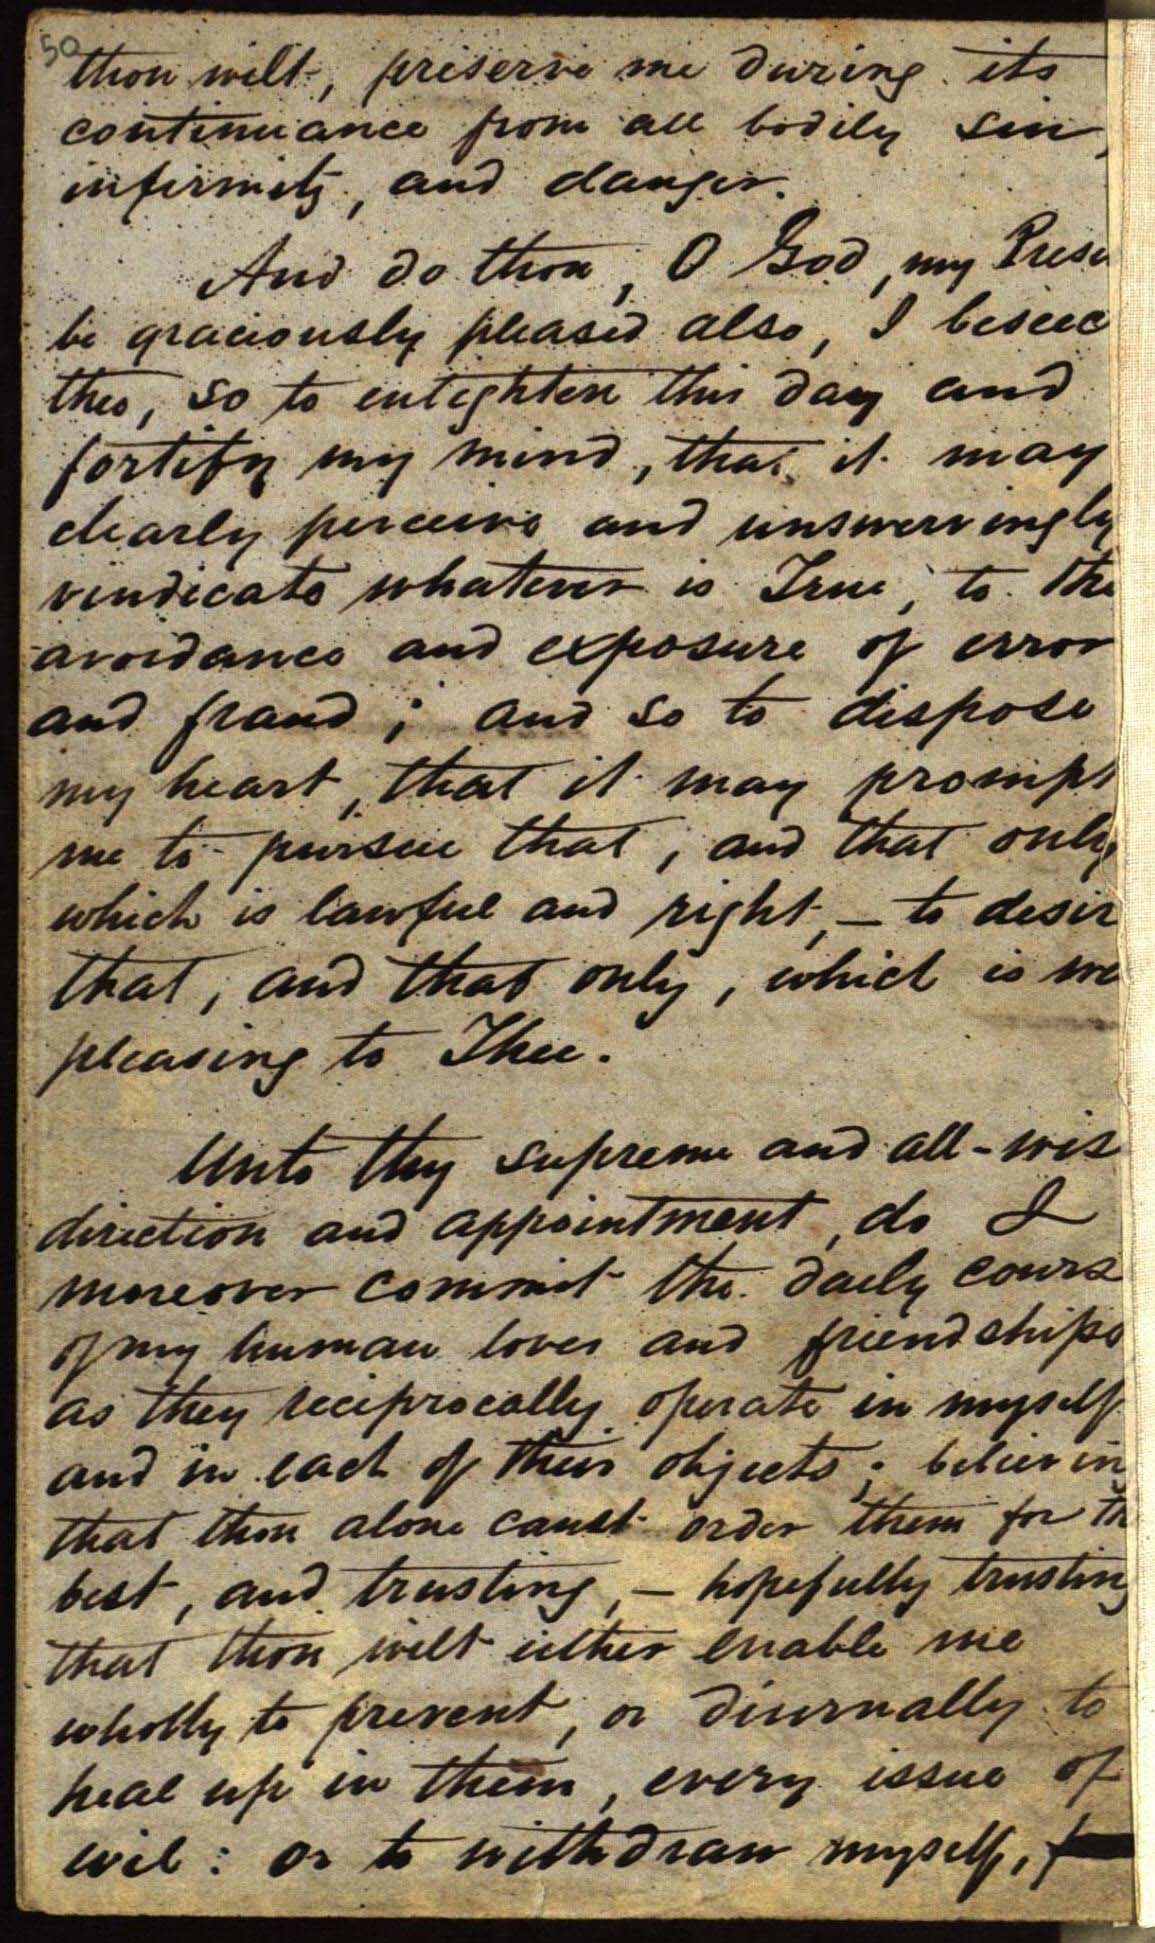 50
thou wilt, preserve me during its
continuance from all bodily sin,
infirmity, and danger.
And do thou, O God, my Prese
be graciously pleased also, I beseec
thee, so to enlighten this day and
fortify my mind, that it may
clearly perceive and unswervingly
vindicate whatever is True, to the
avoidance and exposure of error
and fraud; and so to dispose
my heart, that it may prompt
me to pursue that, and that only,
which is lawful and right, – to desir
that, and that only, which is
pleasing to Thee.
Unto thy supreme and all-wis
direction and appointment, do I
moreover commit the daily cours
of my human loves and friendships
as they reciprocally operate in myself
and in each of their objects; believin
that thou alone canst order them for th
best, and trusting, – hopefully trusting
that thou wilt either enable me
wholly to prevent, or diurnally to
heal up in them, every issue of
evil: or to withdraw myself, f